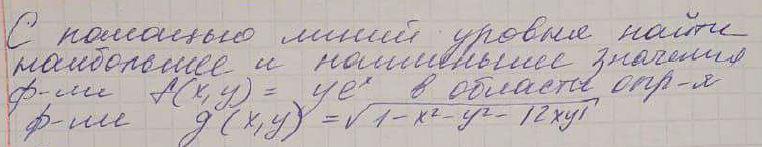 С помощью линий уровня найти
наибольшее и наименьшее значения
ф-ии f(x,y) = ye^x в области опр-я
ф-ии g(x,y) = √1-x²-y²-|2xy|